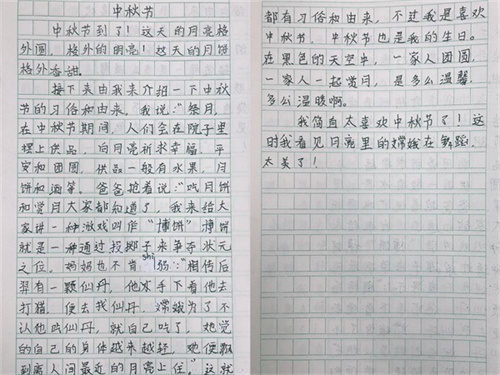 中秋节
中秋节到了！这天的月亮格
外圆，格外的明亮！这天的月饼
格外香甜。
接下来由我来介绍一下中秋
节的习俗和由来，我说："祭月，
在中秋节期间，人们会在院子里
摆上供品，向月亮祈求幸福、平
安和团圆，供品一般有水果，月
饼和酒等，爸爸抢着说："吃月饼
和赏月大家都知道了，我来给大
家讲一种游戏叫作"博饼"博饼
就是一种通过投掷子来争夺状元
之位，妈妈也不肯shì弱："相传后
羿有一颗仙丹，他手下看他去
打猎，便去我仙丹，嫦娥为了不
认他吃仙丹，就自己吃了，她觉
的自己的身体越来越轻，她便飘
到离人间最近的月亮上住。"这就
都有习俗和由来，不过我是喜欢
中秋节，中秋节也是我的生日。
在黑色的天空中，一家人团圆，
一家人一起赏月，是多么温馨，
多么温暖啊。
我简直太喜欢中秋节了！这
时我看见月亮里的嫦娥在舞蹈，
太美了！